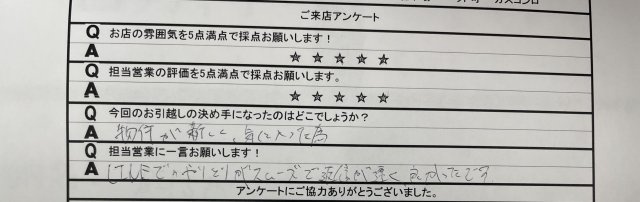 ご来店アンケート
Q お店の雰囲気を5点満点で採点お願いします!
A ☆ ☆ ☆ ☆ ☆
Q 担当営業の評価を5点満点で採点お願いします。
A ☆ ☆ ☆ ☆ ☆
Q 今回のお引越しの決め手になったのはどこでしょうか?
A 物件が新しく、気に入った為
Q 担当営業に一言お願いします!
A LINEでのやりとりがスムーズで返信が速く良かったです
アンケートにご協力ありがとうございました。